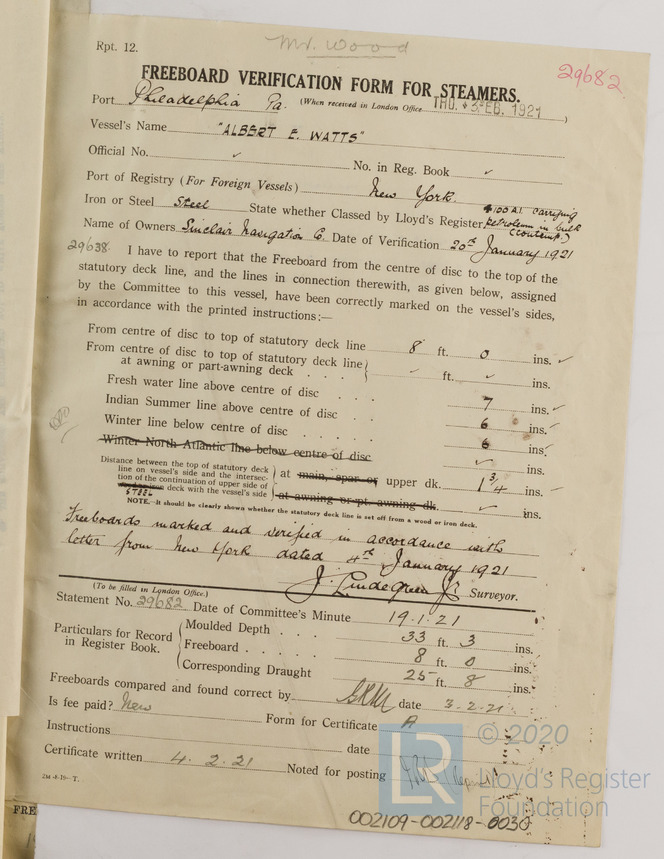 Rpt. 12.
Mr. Wood
29682
FREEBOARD VERIFICATION FORM FOR STEAMERS.
Port Philadelphia Pa. (When received in London Office THU. 3 FEB. 1921)
Vessel's Name "ALBERT E. WATTS"
Official No. ✓ No. in Reg. Book ✓
Port of Registry (For Foreign Vessels) New York.
Iron or Steel Steel State whether Classed by Lloyd's Register 100 A1. Carrying
Petroleum in bulk
(Contemp.)
Name of Owners Sinclair Navigation Co. Date of Verification 20th January 1921
29638 I have to report that the Freeboard from the centre of disc to the top of the
statutory deck line, and the lines in connection therewith, as given below, assigned
by the Committee to this vessel, have been correctly marked on the vessel's sides,
in accordance with the printed instructions:—
From centre of disc to top of statutory deck line 8 ft. 0 ins. ✓
From centre of disc to top of statutory deck line
at awning or part-awning deck . . . ✓ ft. ✓ ins.
Fresh water line above centre of disc . . . 7 ins. ✓
Indian Summer line above centre of disc . . 6 ins. ✓
Winter line below centre of disc . . . . . 6 ins. ✓
Winter North Atlantic line below centre of disc ✓ ins.
Distance between the top of statutory deck
line on vessel's side and the intersec-
tion of the continuation of upper side of
STEEL deck with the vessel's side
at main, spar or upper dk. 1 3/4 ins. ✓
at awning or pt. awning dk. ✓ ins.
NOTE.—It should be clearly shown whether the statutory deck line is set off from a wood or iron deck.
Freeboards marked and verified in accordance with
letter from New York dated 4th January 1921
J. Lindegreen Jr. Surveyor.
(To be filled in London Office.)
Statement No. 29682 Date of Committee's Minute 19.1.21
Particulars for Record
in Register Book.
Moulded Depth . . . 33 ft. 3 ins.
Freeboard . . . . . 8 ft. 0 ins.
Corresponding Draught 25 ft. 8 ins.
Freeboards compared and found correct by date 3.2.21
Is fee paid? New Form for Certificate A
Instructions date
Certificate written 4.2.21 Noted for posting
2M -8-19- T.
FRE
© 2020
LR Lloyd's Register
Foundation
002109-002118-0030